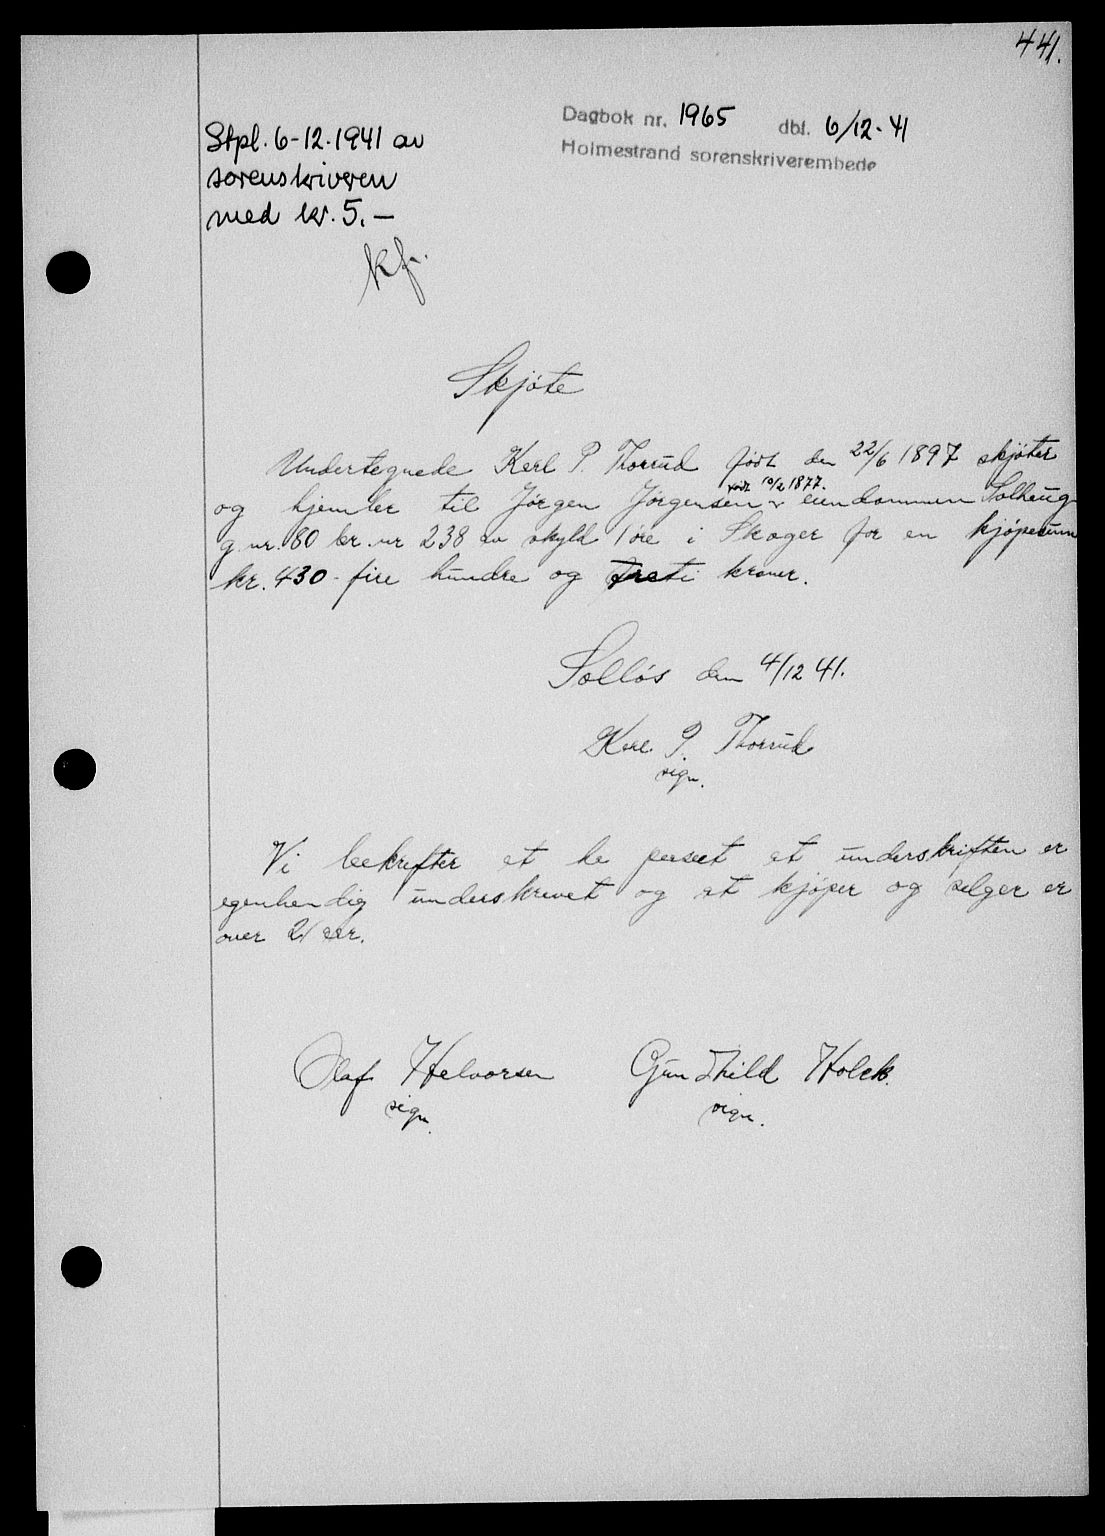 441.
Dagbok nr. 1965 dbf. 6/12-41
Holmestrand sorenskriverembede
Stpl. 6-12-1941 av
sorenskriveren
med kr. 5.-
kf.
Skjöte
Undertegnede Karl P. Thorrud födt den 22/6 1897 skjöter
födt 10/2 1877.
og hjemler til Jörgen Jörgensen eiendommen Solhaug
g.nr. 80 br.nr 238 av skyld 1 öre i Skoger for en kjöpesum
kr. 430 - fire hundre og treti kroner.
Solløs den 4/12 41.
Karl P. Thorrud
sign.
Vi bekrefter at ha paaset at underskriften er
egenhendig underskrevet og at kjöper og selger er
over 21 aar.
Olaf Halvorsen Gundhild Holck.
sign. sign.